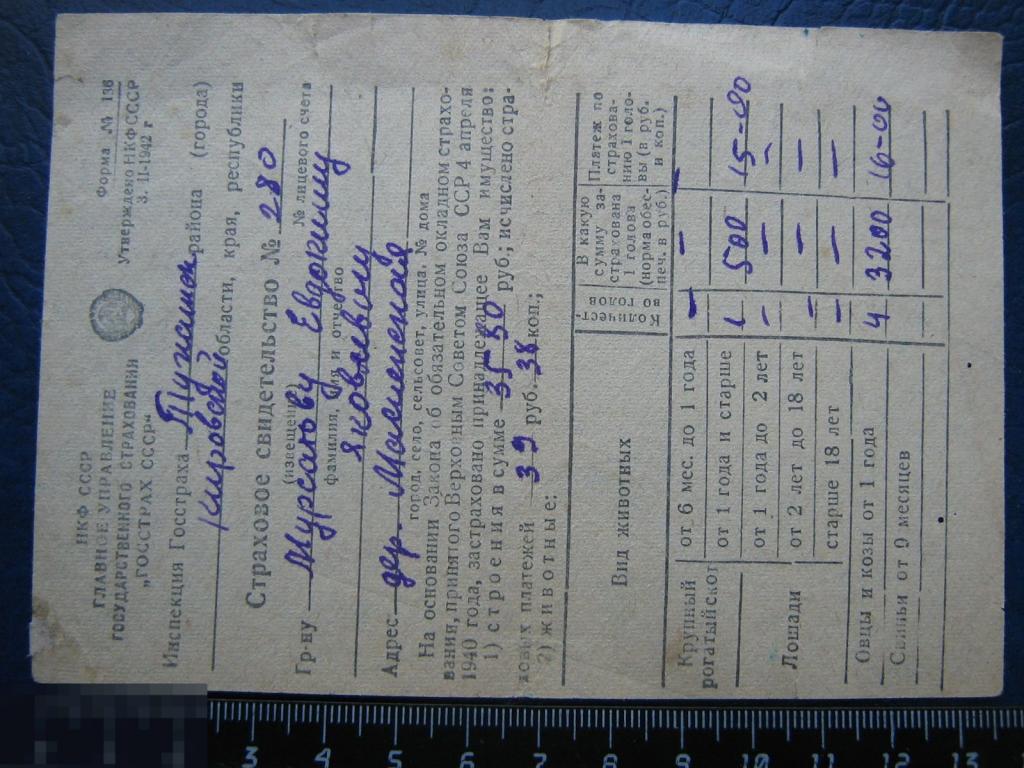 НКФ СССР
ГЛАВНОЕ УПРАВЛЕНИЕ
ГОСУДАРСТВЕННОГО СТРАХОВАНИЯ
„ГОССТРАХ СССР“
Форма № 136
Утверждено НКФСССР
3. II-1942 г
Инспекция Госстраха Тужинск района (города)
Кировской области, края, республики
Страховое свидетельство № 280
(извещение) № лицевого счета
Гр-ну Евдокиму
фамилия, имя и отчество
Яковлевичу
Адрес дер.
город, село, сельсовет, улица, № дома
На основании Закона об обязательном окладном страхо-
вании, принятого Верховным Советом Союза ССР 4 апреля
1940 года, застраховано принадлежащее Вам имущество:
1) строения в сумме 3530 руб.; исчислено стра-
ховых платежей 39 руб. 38 коп.;
2) животные:
Вид животных
Количест-
во голов
В какую
сумму за-
страхована
1 голова
(норма обес-
печ. в руб.)
Платеж по
страхова-
нию 1 голо-
вы (в руб.
и коп.)
Крупный
рогатый скот
от 6 мес. до 1 года — — —
от 1 года и старше 1 500 15-00
Лошади
от 1 года до 2 лет — — —
от 2 лет до 18 лет — — —
старше 18 лет — — —
Овцы и козы от 1 года 4 3200 16-00
Свиньи от 9 месяцев
3 4 5 6 7 8 9 10 11 12 13